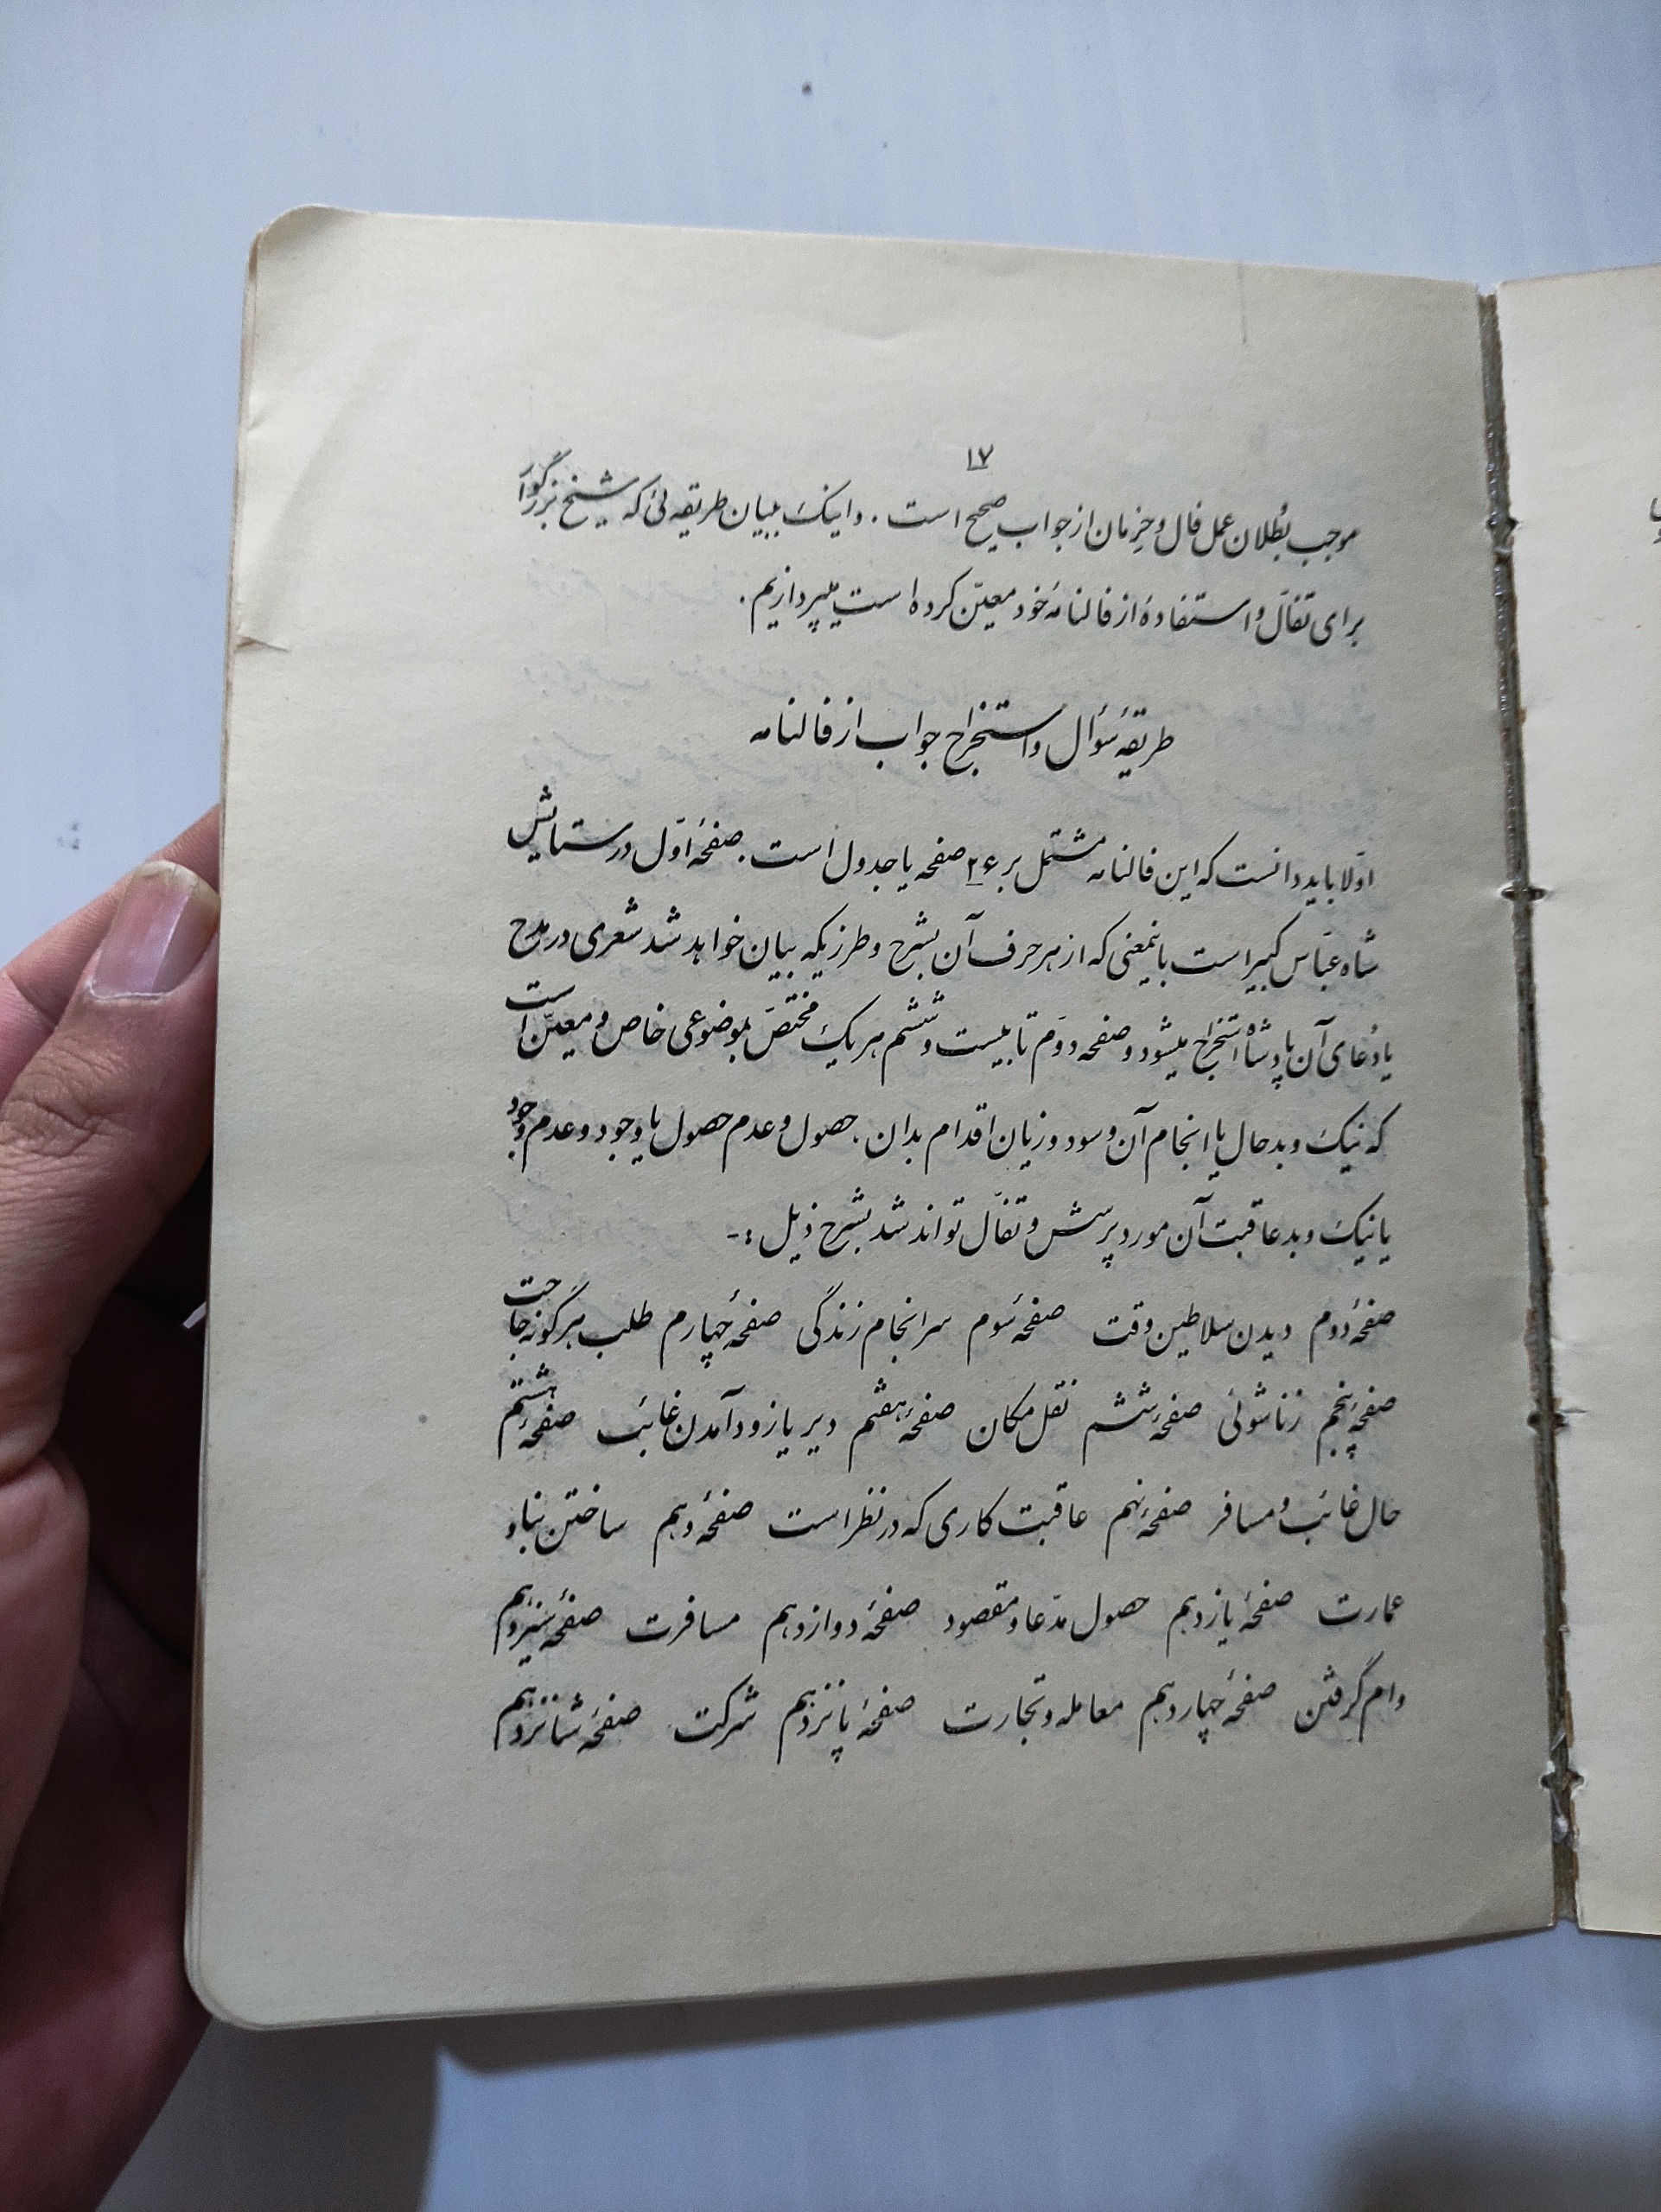 ۱۷
موجب بُطلان عمل فال و حِرمان از جواب صحیح است . و اینک ببیان طریقه‌ئی که شیخ بزرگوار
برای تفأل و استفادهٔ از فالنامهٔ خود معیّن کرده است میپردازیم .
طریقهٔ سؤال و استخراج جواب از فالنامه
اوّلا باید دانست که این فالنامه مشتمل بر ۲۶ صفحه یا جدول است . صفحهٔ اوّل در ستایش
شاه عبّاس کبیر است باینمعنی که از هر حرف آن بشرح و طرزیکه بیان خواهد شد شعری در مدح
یا دُعای آن پادشاه استخراج میشود و صفحه دوّم تا بیست و ششم هر یک مختصّ بموضوعی خاص و معیّن است
که نیک و بد حال یا انجام آن و سود و زیان اقدام بدان . حصول و عدم حصول یا وجود و عدم وجود
یا نیک و بد عاقبت آن مورد پرسش و تفأل تواند شد بشرح ذیل :-
صفحهٔ دوم دیدن سلاطین وقت صفحهٔ سوم سرانجام زندگی صفحهٔ چهارم طلب هرگونه حاجت
صفحهٔ پنجم زناشوئی صفحهٔ ششم نقل مکان صفحهٔ هفتم دیر یا زود آمدن غائب صفحهٔ هشتم
حال غائب و مسافر صفحهٔ نهم عاقبت کاری که در نظر است صفحهٔ دهم ساختن بنا و
عمارت صفحهٔ یازدهم حصول مدّعا و مقصود صفحهٔ دوازدهم مسافرت صفحهٔ سیزدهم
وام گرفتن صفحهٔ چهاردهم معامله و تجارت صفحهٔ پانزدهم شرکت صفحهٔ شانزدهم